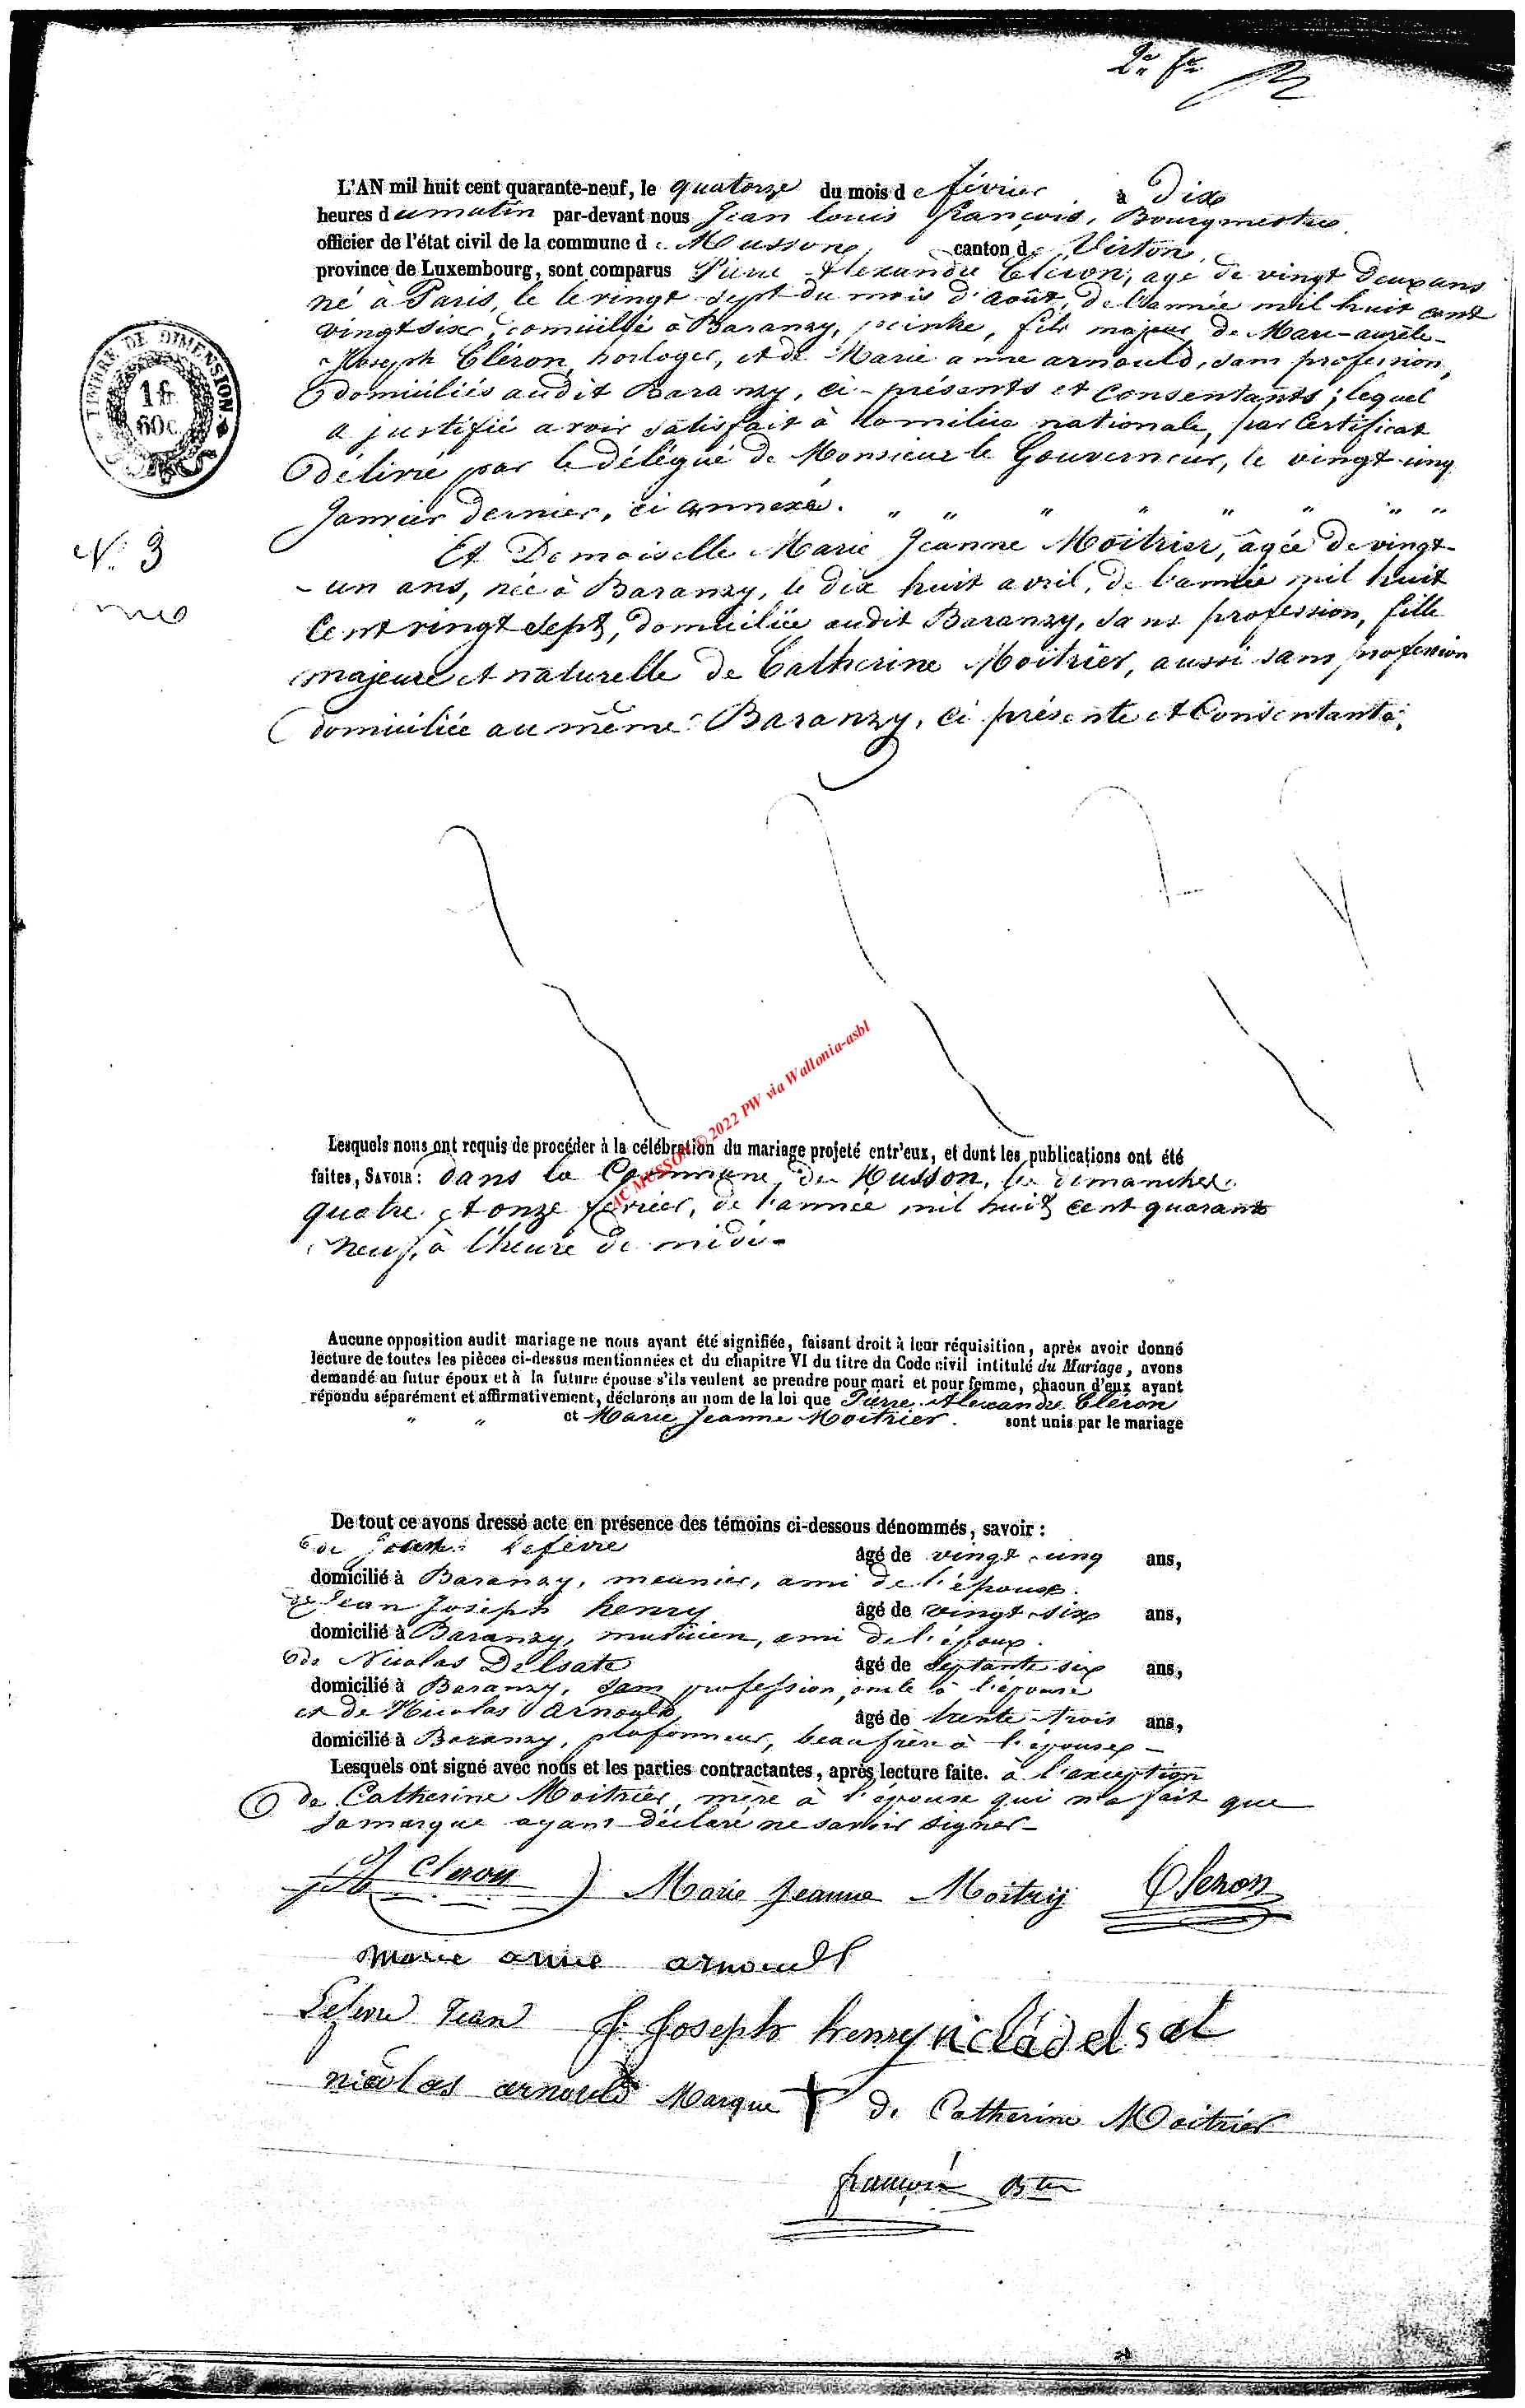 2e fe
L'AN mil huit cent quarante-neuf, le quatorze du mois de février à Dix
heures du matin par-devant nous Jean Louis françois, Bourgmestre
officier de l'état civil de la commune de Musson, canton de Virton,
province de Luxembourg, sont comparus Pierre Alexandre Cléron, agé de vingt deux ans
né à Paris, le le vingt-sept du mois d'août, de l'année mil huit cent
vingt six, domicilié à Baranzy, peintre, fils majeur de Marc-aurèle-
Joseph Cléron, horloger, et de Marie anne arnould, sans profession,
domiciliés audit Baranzy, ci-présents et Consentants; lequel
a justifié avoir satisfait à la milice nationale, par Certificat
délivré par le délégué de Monsieur le Gouverneur, le vingt-cinq
Janvier dernier, ci annexé. " " " " " " " "
Et Demoiselle Marie Jeanne Moitrier, âgée de vingt-
- un ans, née à Baranzy, le dix huit avril, de l'année mil huit
Cent vingt sept, domiciliée audit Baranzy, sans profession, fille
majeure et naturelle de Catherine Moitrier, aussi sans profession
domiciliée au même Baranzy, ci présente et Consentante.
TIMBRE DE DIMENSION
1 fr.
60 c.
N° 3
Lesquels nous ont requis de procéder à la célébration du mariage projeté entr'eux, et dont les publications ont été
faites, SAVOIR: dans la Commune de Musson, les dimanches
quatre et onze février, de l'année mil huit cent quarante
neuf, à l'heure de midi-
AC MUSSON © 2022 PW via Wallonia-asbl
Aucune opposition audit mariage ne nous ayant été signifiée, faisant droit à leur réquisition, après avoir donné
lecture de toutes les pièces ci-dessus mentionnées et du chapitre VI du titre du Code civil intitulé du Mariage, avons
demandé au futur époux et à la future épouse s'ils veulent se prendre pour mari et pour femme, chacun d'eux ayant
répondu séparément et affirmativement, déclarons au nom de la loi que Pierre Alexandre Cléron
" " et Marie Jeanne Moitrier. sont unis par le mariage
De tout ce avons dressé acte en présence des témoins ci-dessous dénommés, savoir:
de Jean Lefèvre âgé de vingt-cinq ans,
domicilié à Baranzy, meunier, ami de l'époux.
de Jean Joseph henry âgé de vingt-six ans,
domicilié à Baranzy, musicien, ami de l'époux.
de Nicolas Delsate âgé de septante six ans,
domicilié à Baranzy, sans profession, oncle à l'épouse
et de Nicolas Arnould âgé de trente-trois ans,
domicilié à Baranzy, plafonneur, beau frère à l'épouse -
Lesquels ont signé avec nous et les parties contractantes, après lecture faite. à l'exception
de Catherine Moitrier, mère à l'épouse qui n'a fait que
sa marque ayant déclaré ne savoir signer-
Cleron Marie Jeanne Moitrij Cleron
Marie anne arnould
Lefevre Jean J. Joseph henry nicla delsat
nicolas arnould Marque + de Catherine Moitrier
françois Btre